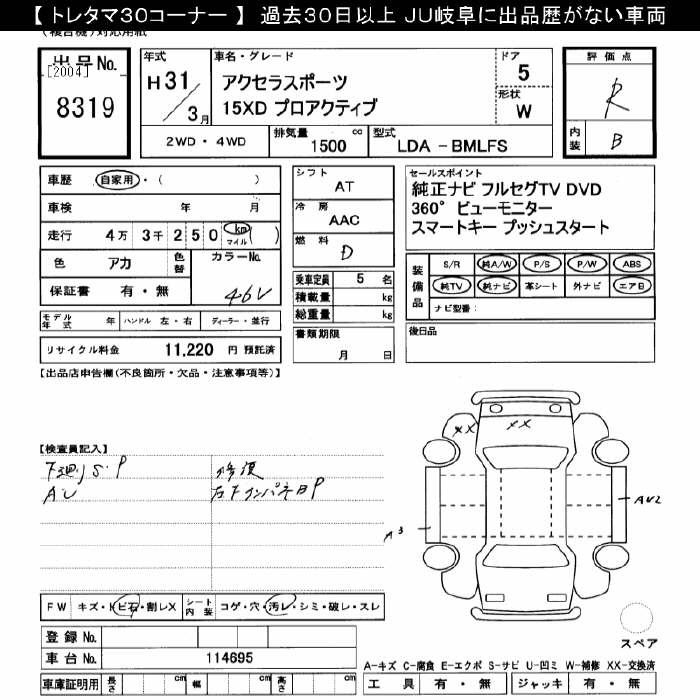 【 トレタマ30コーナー 】 過去30日以上 JU岐阜に出品歴がない車両
(複合機)対応用紙
出品No.
[2004]
8319
年式
H 31 / 3 月
車名・グレード
アクセラスポーツ
15XD プロアクティブ
ドア
5
形状
W
2WD ・ 4WD
排気量 cc
1500
型式
LDA －BMLFS
評価点
R
内装
B
車歴 自家用・( )
車検 年 月
走行 4万 3千 2 5 0 km マイル ( )
色 アカ 色替 カラーNo.
46V
保証書 有・無
モデル年式 年 ハンドル 左・右 ディーラー・並行
リサイクル料金 11,220 円 預託済
シフト
AT
冷房
AAC
燃料
D
乗車定員 5 名
積載量 kg
総重量 kg
書類期限
月 日
セールスポイント
純正ナビ フルセグTV DVD
360°ビューモニター
スマートキー プッシュスタート
装備品
S/R 純A/W P/S P/W ABS
純TV 純ナビ 革シート 外ナビ エアB
ナビ型番:
後日品
【出品店申告欄(不良箇所・欠品・注意事項等)】
【検査員記入】
下廻りS・P
AU
修復
XX
XX
A3
AU2
FW キズ・トビ石・割レX
シート内装 コゲ・穴・汚レ・シミ・破レ・スレ
登録 No.
車台 No. 114695
車庫証明用 長さ cm 幅 cm 高さ cm
スペア
A-キズ C-腐食 E-エクボ S-サビ U-凹ミ W-補修 XX-交換済
工具 有・無 ジャッキ 有・無